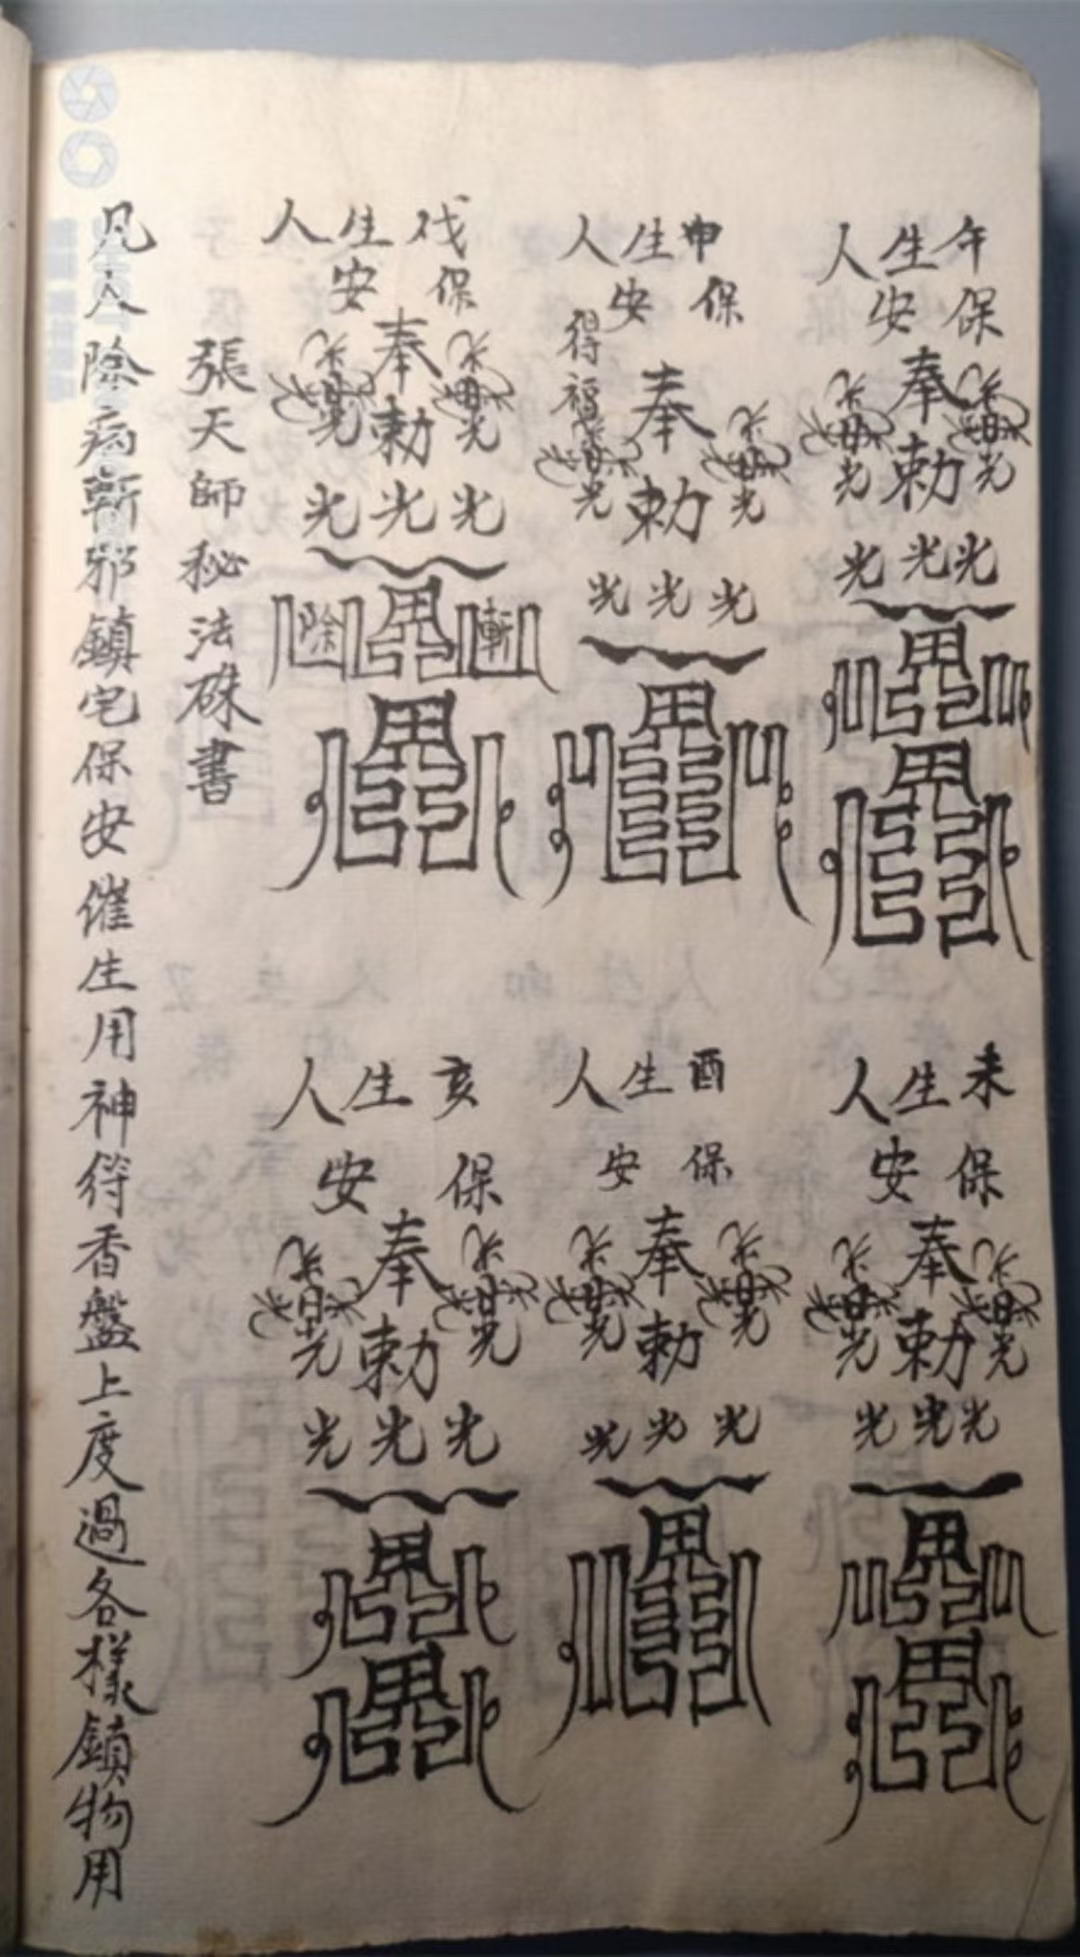 午生人
保安
奉勅
光光光
未生人
保安
奉勅
光光光
申生人
保安
得福
奉勅
光光光
酉生人
保安
奉勅
光光光
伐生人
保安
奉勅
光光光
斬除
亥生人
保安
奉勅
光光光
張天師秘法硃書
凡人除病斬邪鎮宅保安催生用神符香盤上度過各樣鎮物用